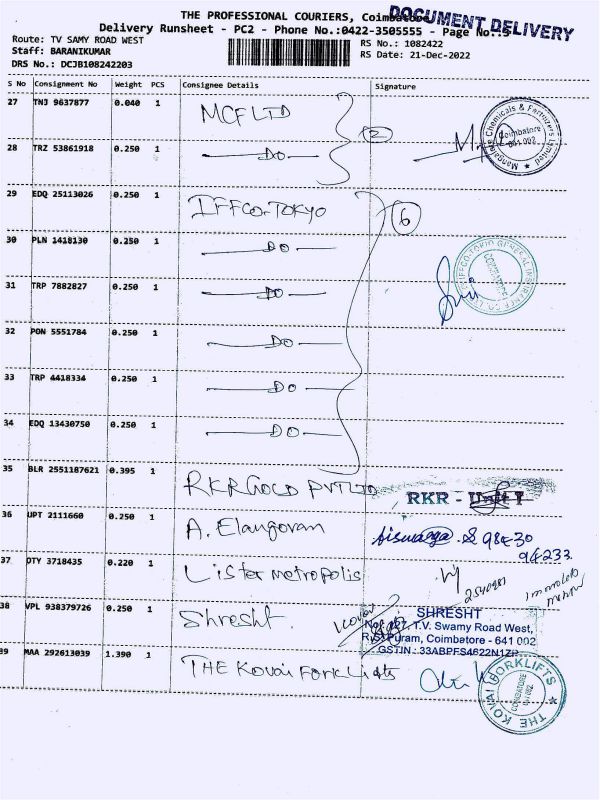 THE PROFESSIONAL COURIERS, Coimbatore
DOCUMENT DELIVERY
Delivery Runsheet - PC2 - Phone No.:0422-3505555 - Page No.:5
Route: TV SAMY ROAD WEST
RS No.: 1082422
Staff: BARANIKUMAR
RS Date: 21-Dec-2022
DRS No.: DCJB108242203
S No Consignment No Weight PCS Consignee Details Signature
27 TNJ 9637877 0.040 1 MCF LTD
2
Mangalore Chemicals & Fertilizers Limited
Coimbatore
641 002
28 TRZ 53861918 0.250 1 — DO —
29 EDQ 25113026 0.250 1 IFFCO-TOKYO
6
30 PLN 1418130 0.250 1 — DO —
IFFCO-TOKIO GENERAL INSURANCE CO. LTD
COIMBATORE
31 TRP 7882827 0.250 1 — DO —
32 PON 5551784 0.250 1 — DO —
33 TRP 4418334 0.250 1 — DO —
34 EDQ 13430750 0.250 1 — DO —
35 BLR 2551187621 0.395 1 RKR GOLD PVT LTD
RKR - Unit I
36 UPT 2111660 0.250 1 A. Elangovan
Aiswarya .S 98430
94233
37 OTY 3718435 0.220 1 Lister metropolis
38 VPL 938379726 0.250 1 Shresht
SHRESHT
T.V. Swamy Road West,
R.S. Puram, Coimbatore - 641 002
GSTIN : 33ABPFS4622N1ZP
39 MAA 292613039 1.390 1 THE Kovai Forklifts
THE KOVAI FORKLIFTS
COIMBATORE
641 002